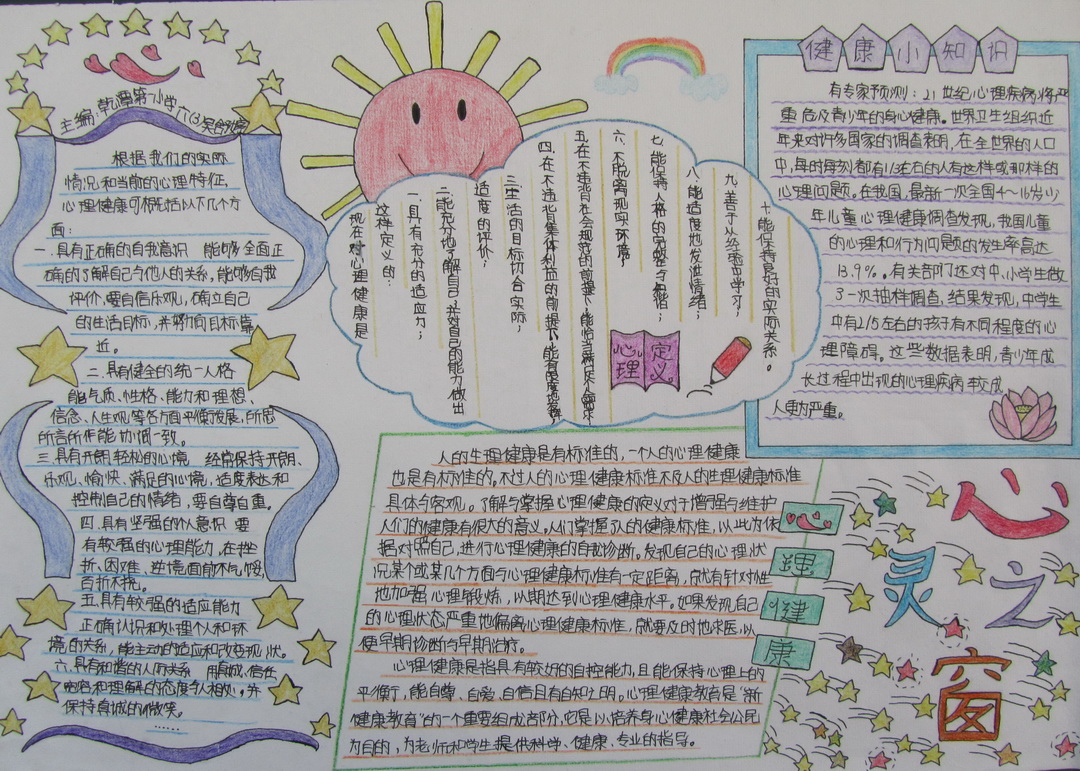 主编:乾潭第一小学
根据我们的实际
情况和当前的心理特征,
心理健康可概括以下几个方
面:
一.具有正确的自我意识 能够全面正
确的了解自己与他人的关系,能够自我
评价,要自信乐观,确立自己
的生活目标,并努力向目标靠
近。
二.具有健全的统一人格
能气质、性格、能力和理想、
信念、人生观等各方面平衡发展,所思
所言所作能协调一致。
三.具有开朗轻松的心境 经常保持开朗、
乐观、愉快、满足的心境,适度表达和
控制自己的情绪,要自尊自重。
四.具有坚强的个人意识 要
有较强的心理能力,在挫
折、困难、逆境面前不气馁,
百折不挠。
五.具有较强的适应能力
正确认识和处理个人和环
境的关系,能主动的适应和改变现状。
六.具有和谐的人际关系 用真诚、信任
宽容和理解的态度与人相处。并
保持真诚的微笑。
……
现在对心理健康是
这样定义的:
一.具有充分的适应力;
二.能充分地了解自己,并对自己的能力做出
适度的评价;
三.生活的目标切合实际;
四.在不违背集体利益的前提下,能有限度地发挥
五.在不违背社会规范的前提下,能恰当满足个人需求
六.不脱离现实环境;
七.能保持人格的完整与和谐;
八.能适度地发泄情绪;
九.善于从经验中学习;
十.能保持良好的实际关系。
心理
定义。
健康小知识
有专家预测:21世纪心理疾病将严
重危及青少年的身心健康。世界卫生组织近
年来对许多国家的调查表明,在全世界的人口
中,每时每刻都有1/3左右的人有这样或那样的
心理问题,在我国,最新一次全国4~16岁少
年儿童心理健康调查发现,我国儿童
的心理和行为问题的发生率高达
13.9%。有关部门还对中小学生做
了一次抽样调查,结果发现,中学生
中有2/5左右的孩子有不同程度的心
理障碍。这些数据表明,青少年成
长过程中出现的心理疾病较成
人更为严重。
人的生理健康是有标准的,一个人的心理健康
也是有标准的。不过人的心理健康标准不及人的生理健康标准
具体与客观。了解与掌握心理健康的定义对于增强与维护
人们的健康有很大的意义。人们掌握了人的健康标准,以此为依
据对照自己,进行心理健康的自我诊断。发现自己的心理状
况某个或某几个方面与心理健康标准有一定距离,就有针对性
地加强心理锻炼,以期达到心理健康水平。如果发现自己
的心理状态严重地偏离心理健康标准,就要及时地求医,以
便早期诊断与早期治疗。
心理健康是指具有较好的自控能力,且能保持心理上的
平衡,能自尊、自爱、自信且有自知之明。心理健康教育是“新
健康教育”的一个重要组成部分,它是以培养身心健康社会公民
为目的,为老师和学生提供科学、健康、专业的指导。
心
理
健
康
心
灵
之
窗